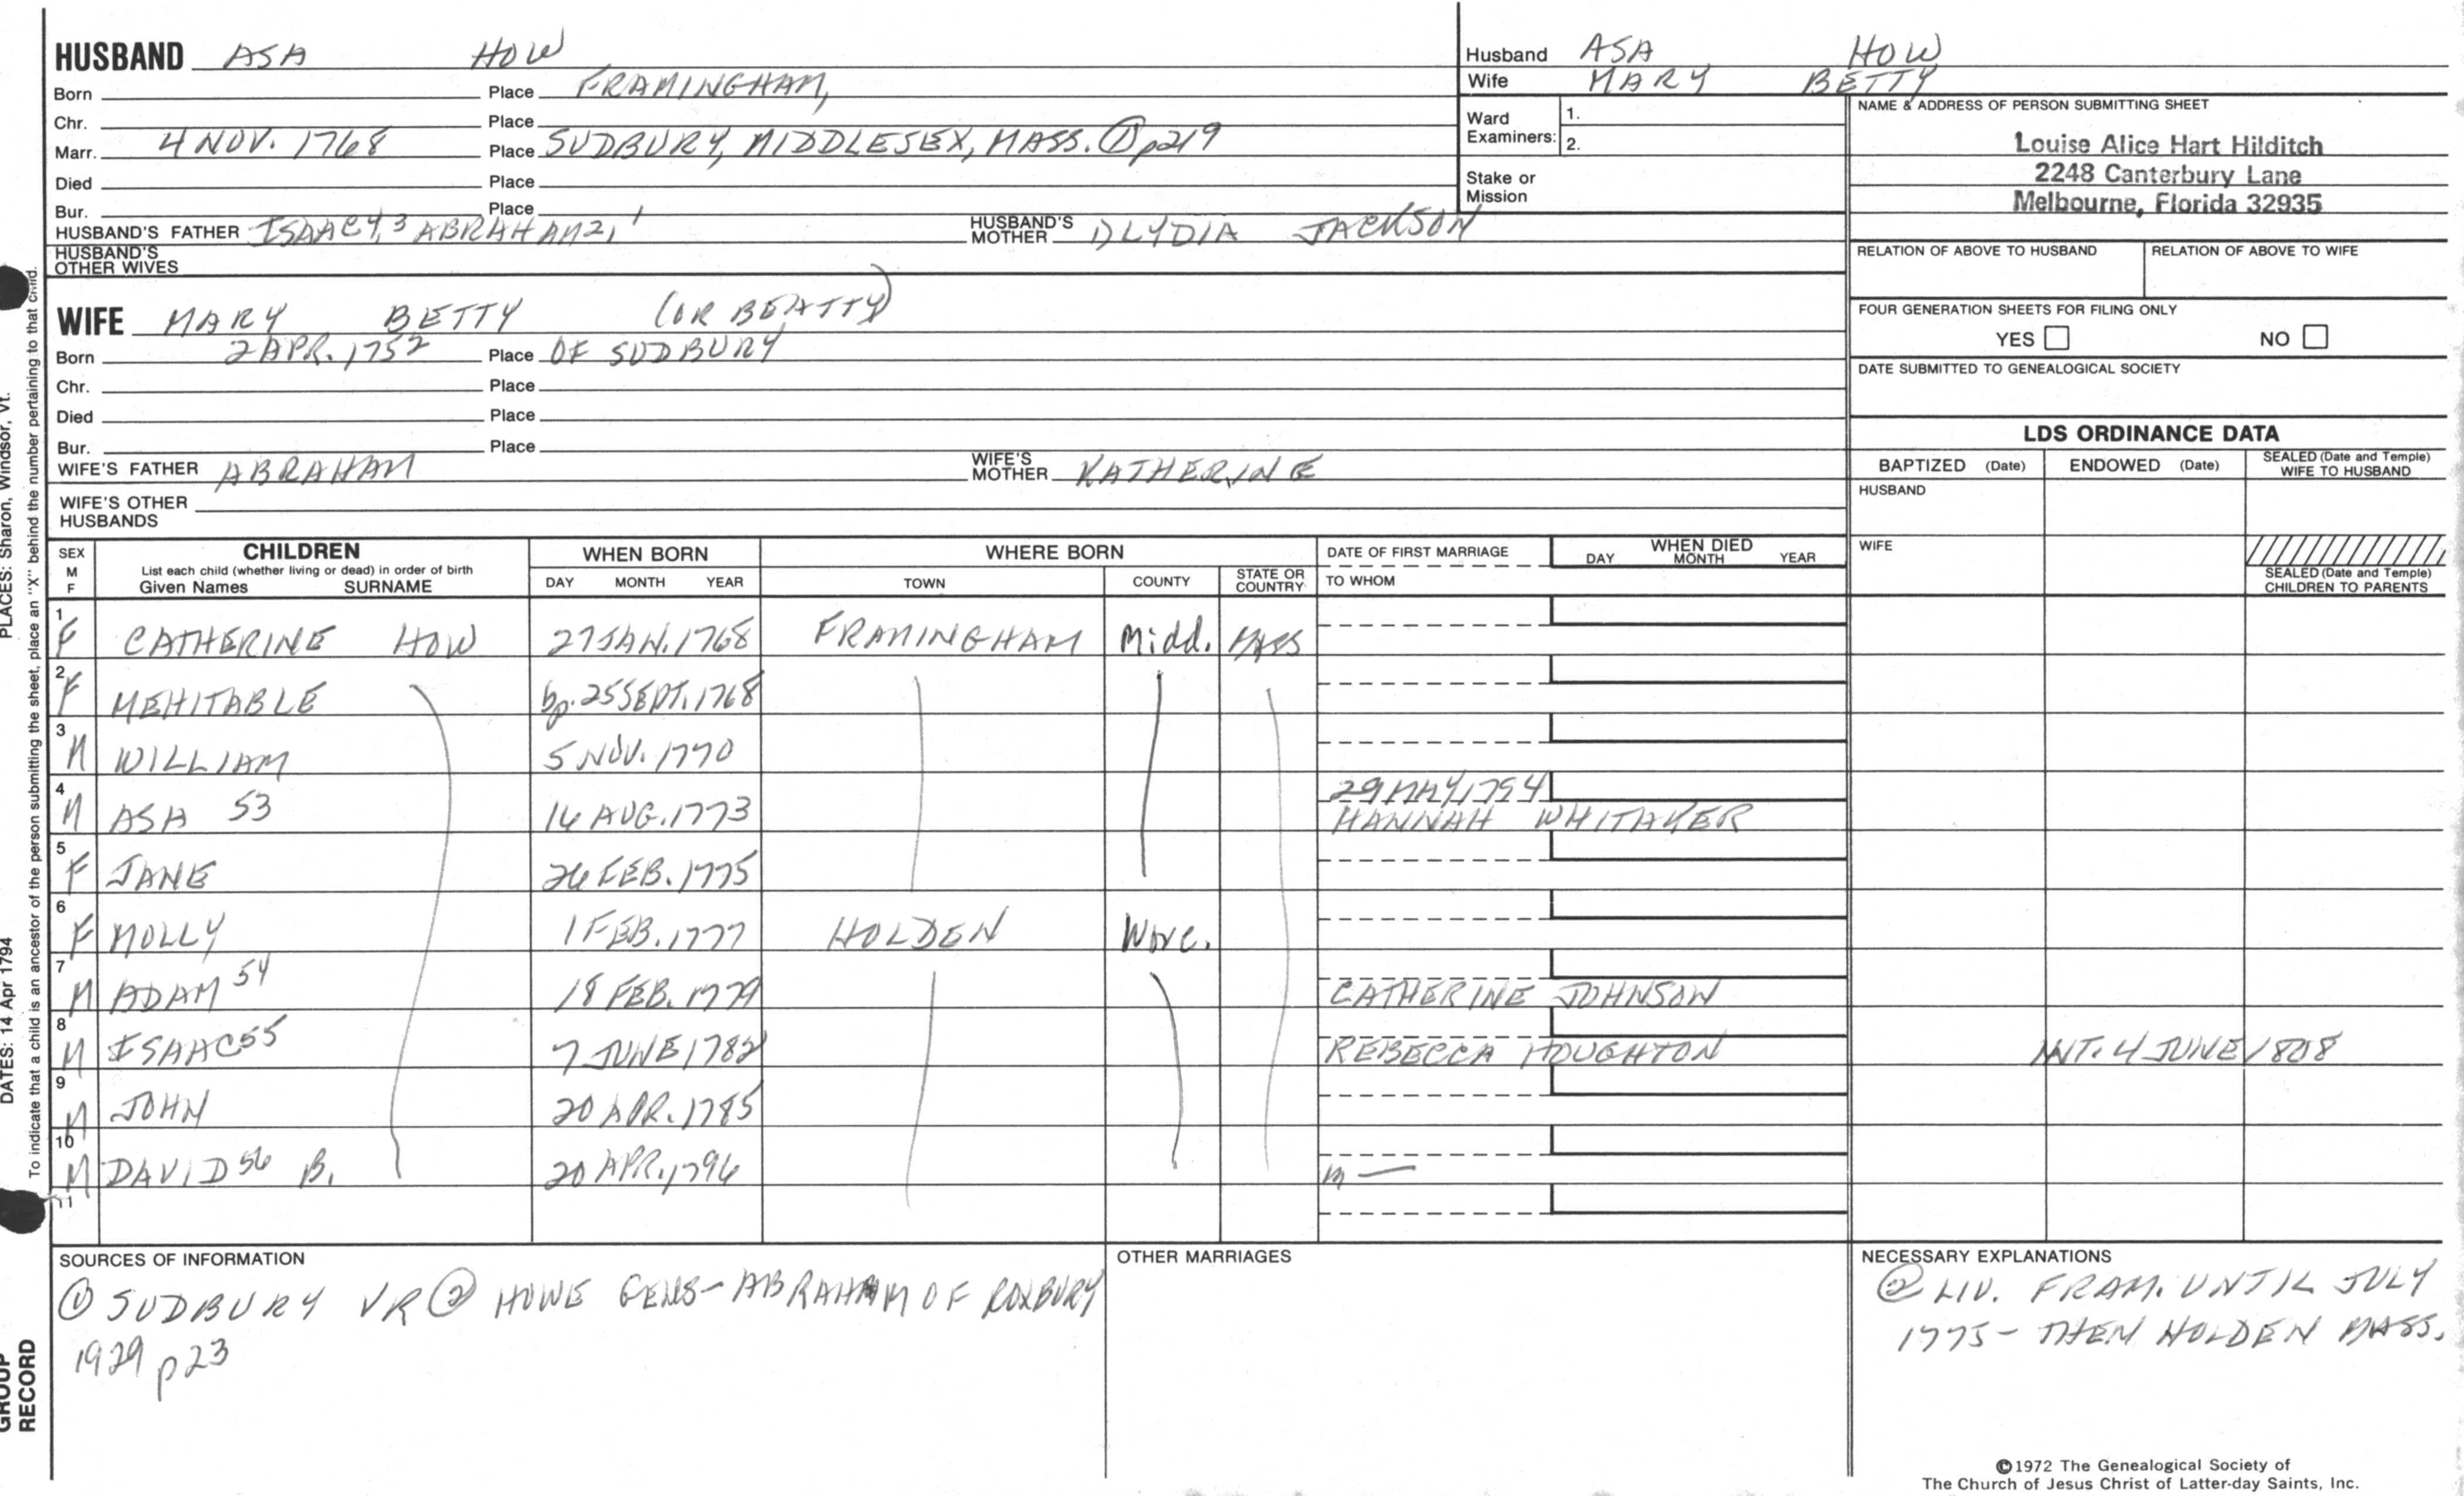 HUSBAND ASA HOW
Born Place FRAMINGHAM,
Chr. Place
Marr. 4 NOV. 1768 Place SUDBURY, MIDDLESEX, MASS. ① p219
Died Place
Bur. Place
HUSBAND'S FATHER ISAAC4,3 ABRAHAM2,1 HUSBAND'S MOTHER LYDIA JACKSON
HUSBAND'S OTHER WIVES
WIFE MARY BETTY (OR BEATTY)
Born 2 APR. 1752 Place OF SUDBURY
Chr. Place
Died Place
Bur. Place
WIFE'S FATHER ABRAHAM WIFE'S MOTHER KATHERINE
WIFE'S OTHER HUSBANDS
Husband ASA HOW
Wife MARY BETTY
Ward Examiners: 1.
2.
Stake or Mission
NAME & ADDRESS OF PERSON SUBMITTING SHEET
Louise Alice Hart Hilditch
2248 Canterbury Lane
Melbourne, Florida 32935
RELATION OF ABOVE TO HUSBAND RELATION OF ABOVE TO WIFE
FOUR GENERATION SHEETS FOR FILING ONLY
YES NO
DATE SUBMITTED TO GENEALOGICAL SOCIETY
LDS ORDINANCE DATA
BAPTIZED (Date) ENDOWED (Date) SEALED (Date and Temple) WIFE TO HUSBAND
HUSBAND
WIFE
SEALED (Date and Temple) CHILDREN TO PARENTS
SEX M F CHILDREN WHEN BORN WHERE BORN DATE OF FIRST MARRIAGE WHEN DIED
List each child (whether living or dead) in order of birth
Given Names SURNAME DAY MONTH YEAR TOWN COUNTY STATE OR COUNTRY TO WHOM DAY MONTH YEAR
1 F CATHERINE HOW 27 JAN. 1768 FRAMINGHAM Midd. MASS
2 F MEHITABLE bp. 25 SEPT. 1768
3 M WILLIAM 5 NOV. 1770
4 M ASA 53 16 AUG. 1773 29 MAY 1794
HANNAH WHITAKER
5 F JANE 26 FEB. 1775
6 F MOLLY 1 FEB. 1777 HOLDEN Worc.
7 M ADAM 54 18 FEB. 1779 CATHERINE JOHNSON
8 M ISAAC 55 7 JUNE 1782 REBECCA HOUGHTON INT. 4 JUNE 1808
9 M JOHN 20 APR. 1785
10 M DAVID 56 B. 20 APR. 1796 m —
11
SOURCES OF INFORMATION
① SUDBURY VR ② HOWE GENS - ABRAHAM OF ROXBURY
1929 p23
OTHER MARRIAGES
NECESSARY EXPLANATIONS
② LIV. FRAM. UNTIL JULY
1775 - THEN HOLDEN MASS.
©1972 The Genealogical Society of
The Church of Jesus Christ of Latter-day Saints, Inc.
To indicate that a child is an ancestor of the person submitting the sheet, place an "X" behind the number pertaining to that child.
DATES: 14 Apr 1794
PLACES: Sharon, Windsor, Vt.
GROUP
RECORD